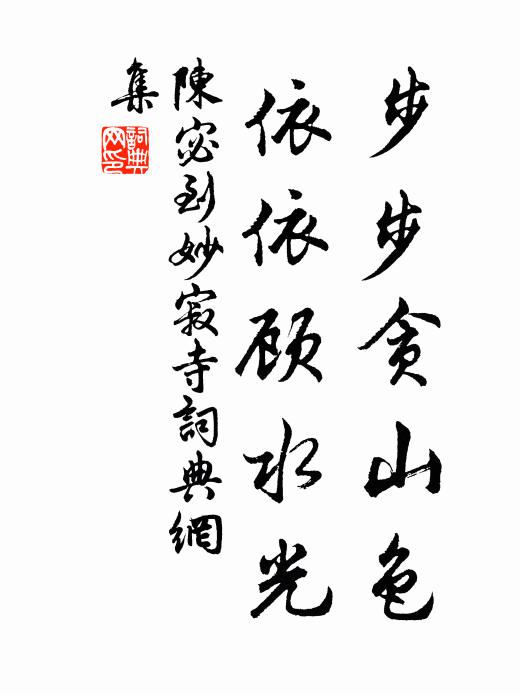 步步贪山色
依依顾水光
陳宓到妙寂寺詞典網
集
詞典
网印